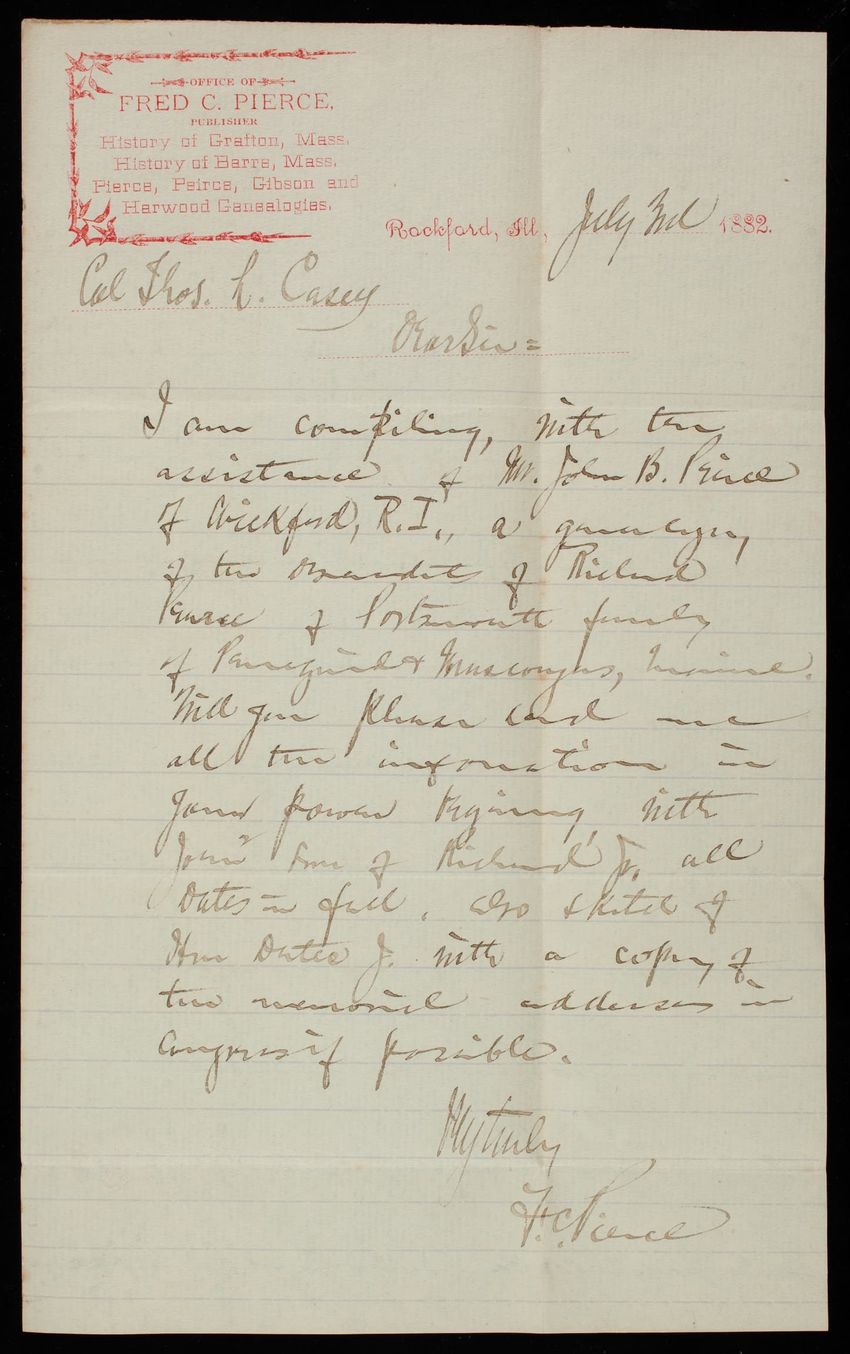 OFFICE OF
FRED C. PIERCE,
PUBLISHER
History of Grafton, Mass.
History of Barre, Mass.
Pierce, Peirce, Gibson and
Harwood Genealogies.
Rockford, Ill., July 3rd 1882.
Col Thos. L. Casey
Dear Sir =
I am compiling, with the
assistance of Mr. John B. Peirce
of Wickford, R.I., a genealogy
of the descendants of Richard
Pearce of Portsmouth family
of Pemaquid & Muscongus, Maine.
Will you please send me
all the information in
your power begining with
John son of Richard Jr. all
Dates in full, also sketch of
Hon Dutee J. with a copy of
the memorial addresses in
Congress if possible.
Very truly
F.C. Pierce